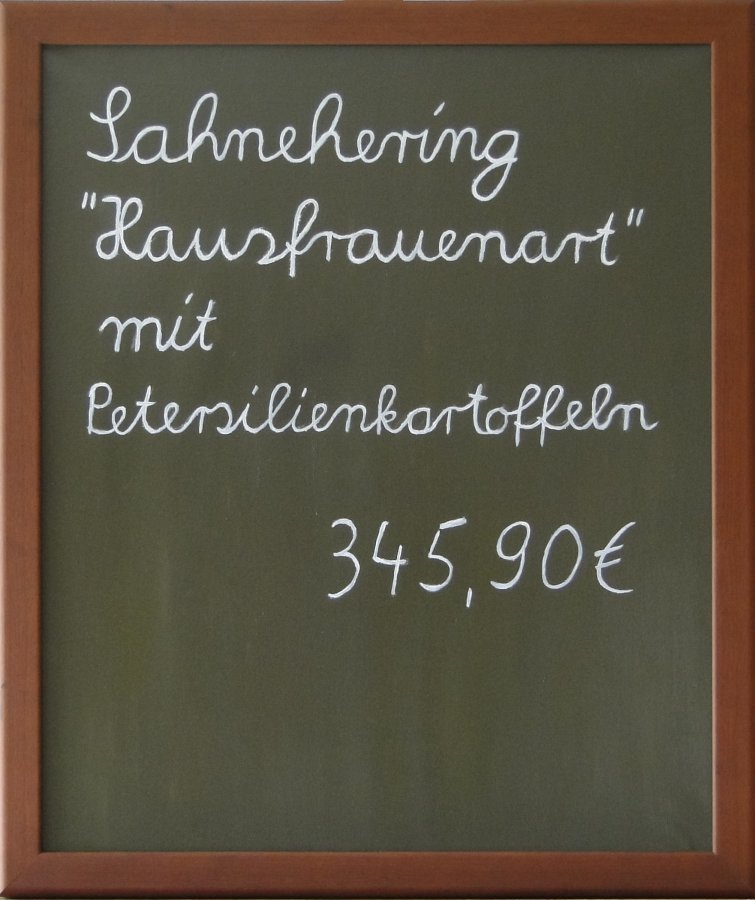 Sahnehering
"Hausfrauenart"
mit
Petersilienkartoffeln
345,90€